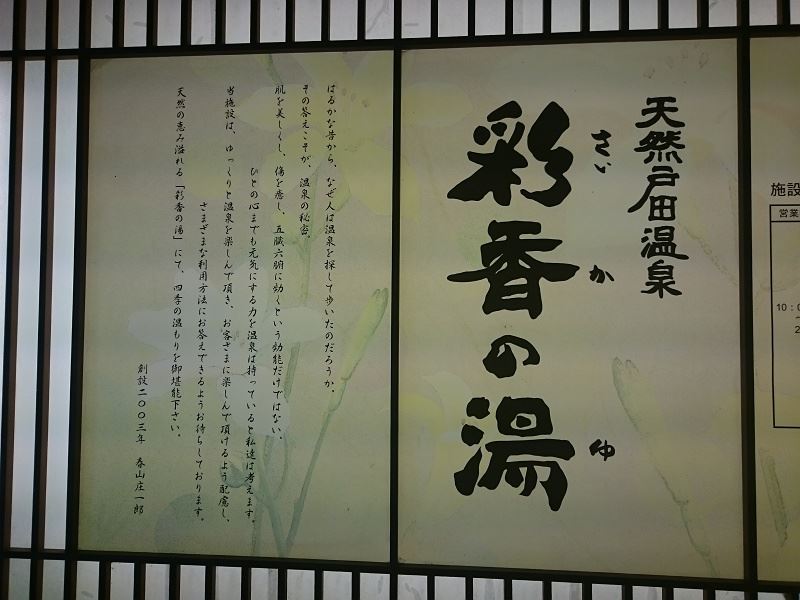 施設
営業
10:0
天然戸田温泉
彩香の湯
さい か ゆ
はるかな昔から、なぜ人は温泉を探して歩いたのだろうか。
その答えこそが、温泉の秘密。
肌を美しくし、傷を癒し、五臓六腑に効くという効能だけではない。
ひとの心までも元気にする力を温泉は持っていると私達は考えます。
当施設は、ゆっくりと温泉を楽しんで頂き、お客さまに楽しんで頂けるよう配慮し、
さまざまな利用方法にお答えできるようお待ちしております。
天然の恵み溢れる「彩香の湯」にて、四季の温もりを御堪能下さい。
創設二〇〇三年 春山庄一郎